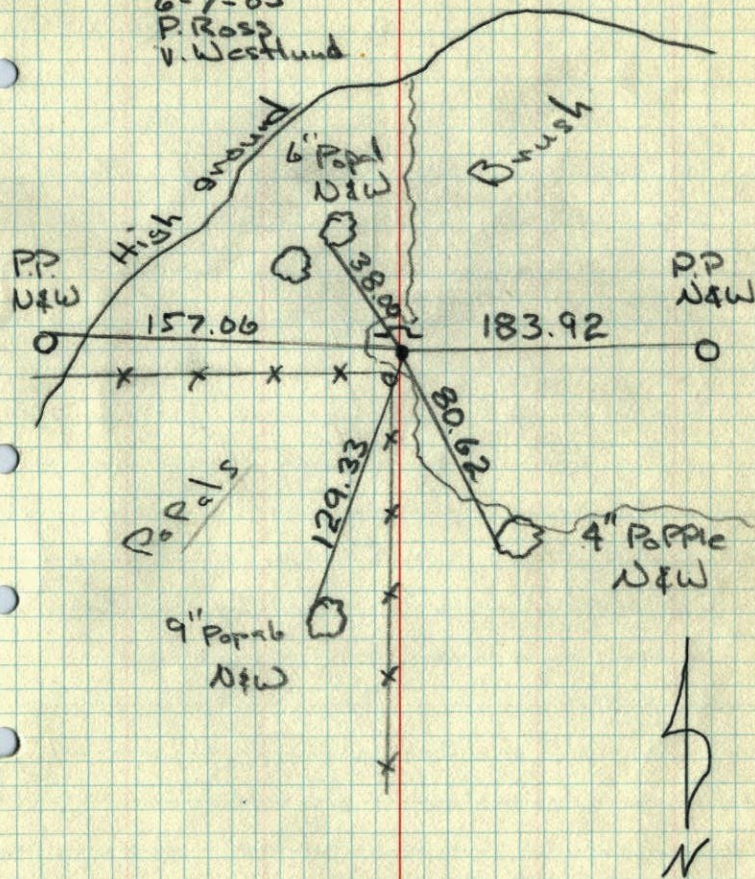 P. Ross
V. Westlund
High ground
Brush
6" Popal
N&W
38.00
P.P.
N&W
157.06
183.92
P.P
N&W
80.62
129.33
Popals
4" Popple
N&W
9" Popal
N&W
N